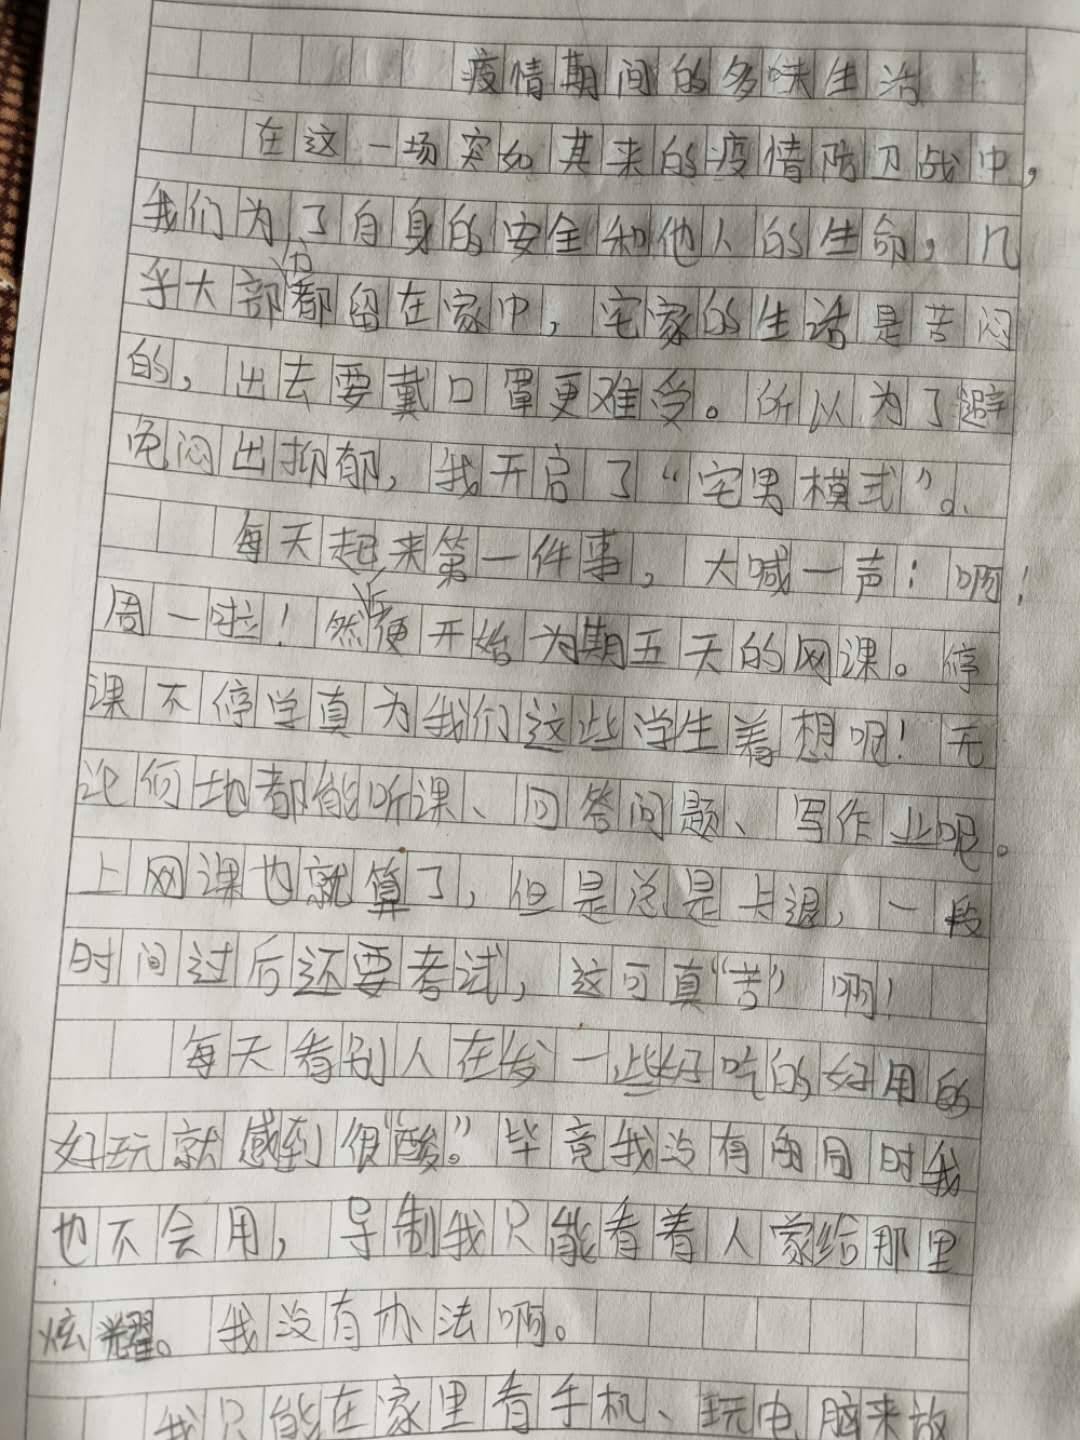 疫情期间的多味生活
在这一场突如其来的疫情防卫战中，
我们为了自身的安全和他人的生命，几
乎大部分都留在家中，宅家的生活是苦闷
的，出去要戴口罩更难受。所以为了避
免闷出抑郁，我开启了“宅男模式”。
每天起来第一件事，大喊一声：啊！
周一啦！然后便开始为期五天的网课。停
课不停学真为我们这些学生着想呢！无
论何地都能听课、回答问题、写作业呢。
上网课也就算了，但是总是卡退，一段
时间过后还要考试，这可真“苦”啊！
每天看别人在发一些好吃的好用的
好玩就感到很“酸”。毕竟我没有同时我
也不会用，导制我只能看着人家给那里
炫耀。我没有办法啊。
我只能在家里看手机、玩电脑来放